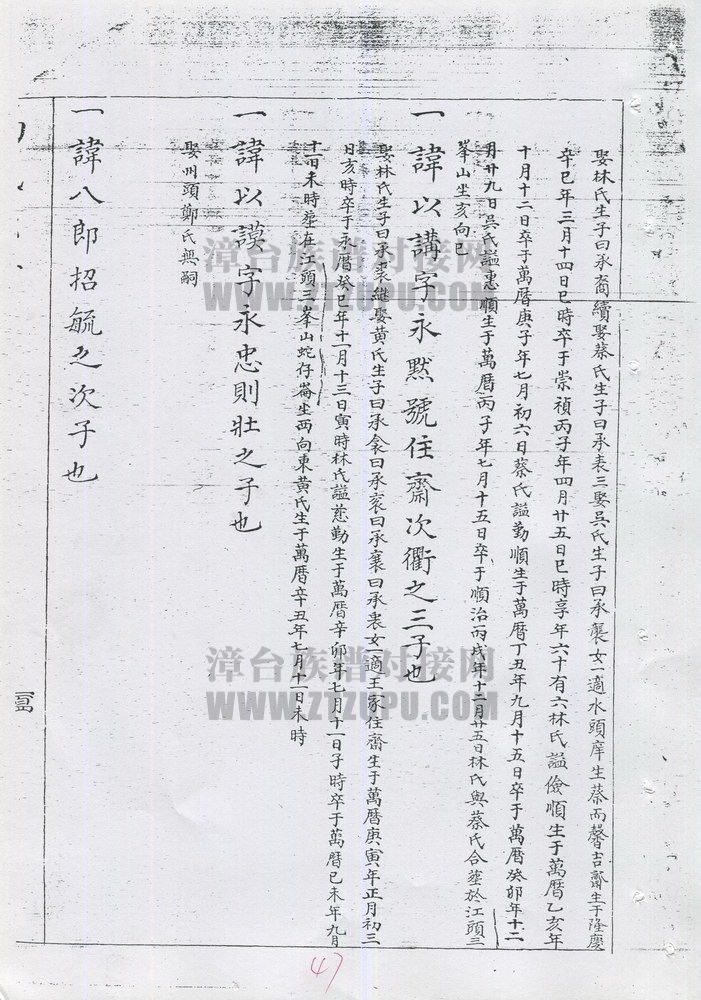 娶林氏生子曰承裔續娶蔡氏生子曰承表三娶吳氏生子曰承襲女一適水頭庠生蔡而馨吉齋生于隆慶
辛巳年三月十四日巳時卒于崇禎丙子年四月廿五日巳時享年六十有六林氏謚儉順生于萬曆乙亥年
十月十二日卒于萬曆庚子年七月初六日蔡氏謚勤順生于萬曆丁丑年九月十五日卒于萬曆癸卯年十二
月廿九日吳氏謚惠順生于萬曆丙子年七月十五日卒于順治丙戌年十二月廿五日林氏與蔡氏合塟於江頭三
峯山坐亥向巳
一諱以講字永默號住齋次衢之三子也
娶林氏生子曰承裘繼娶黃氏生子曰承衾曰承袞曰承襄曰承裊女一適王家住齋生于萬曆庚寅年正月初三
日亥時卒于永曆癸巳年十一月十三日寅時林氏謚慈勤生于萬曆辛卯年七月十一日子時卒于萬曆己未年九月
十一日未時塟在江頭三峯山蛇仔崙坐西向東黃氏生于萬曆辛丑年七月十一日未時
一諱以謨字永忠則壯之子也
娶州頭鄭氏無嗣
一諱八郎招毓之次子也
47
漳台族谱对接网
WWW.ZTZUPU.COM
漳台族谱对接网
WWW.ZTZUPU.COM